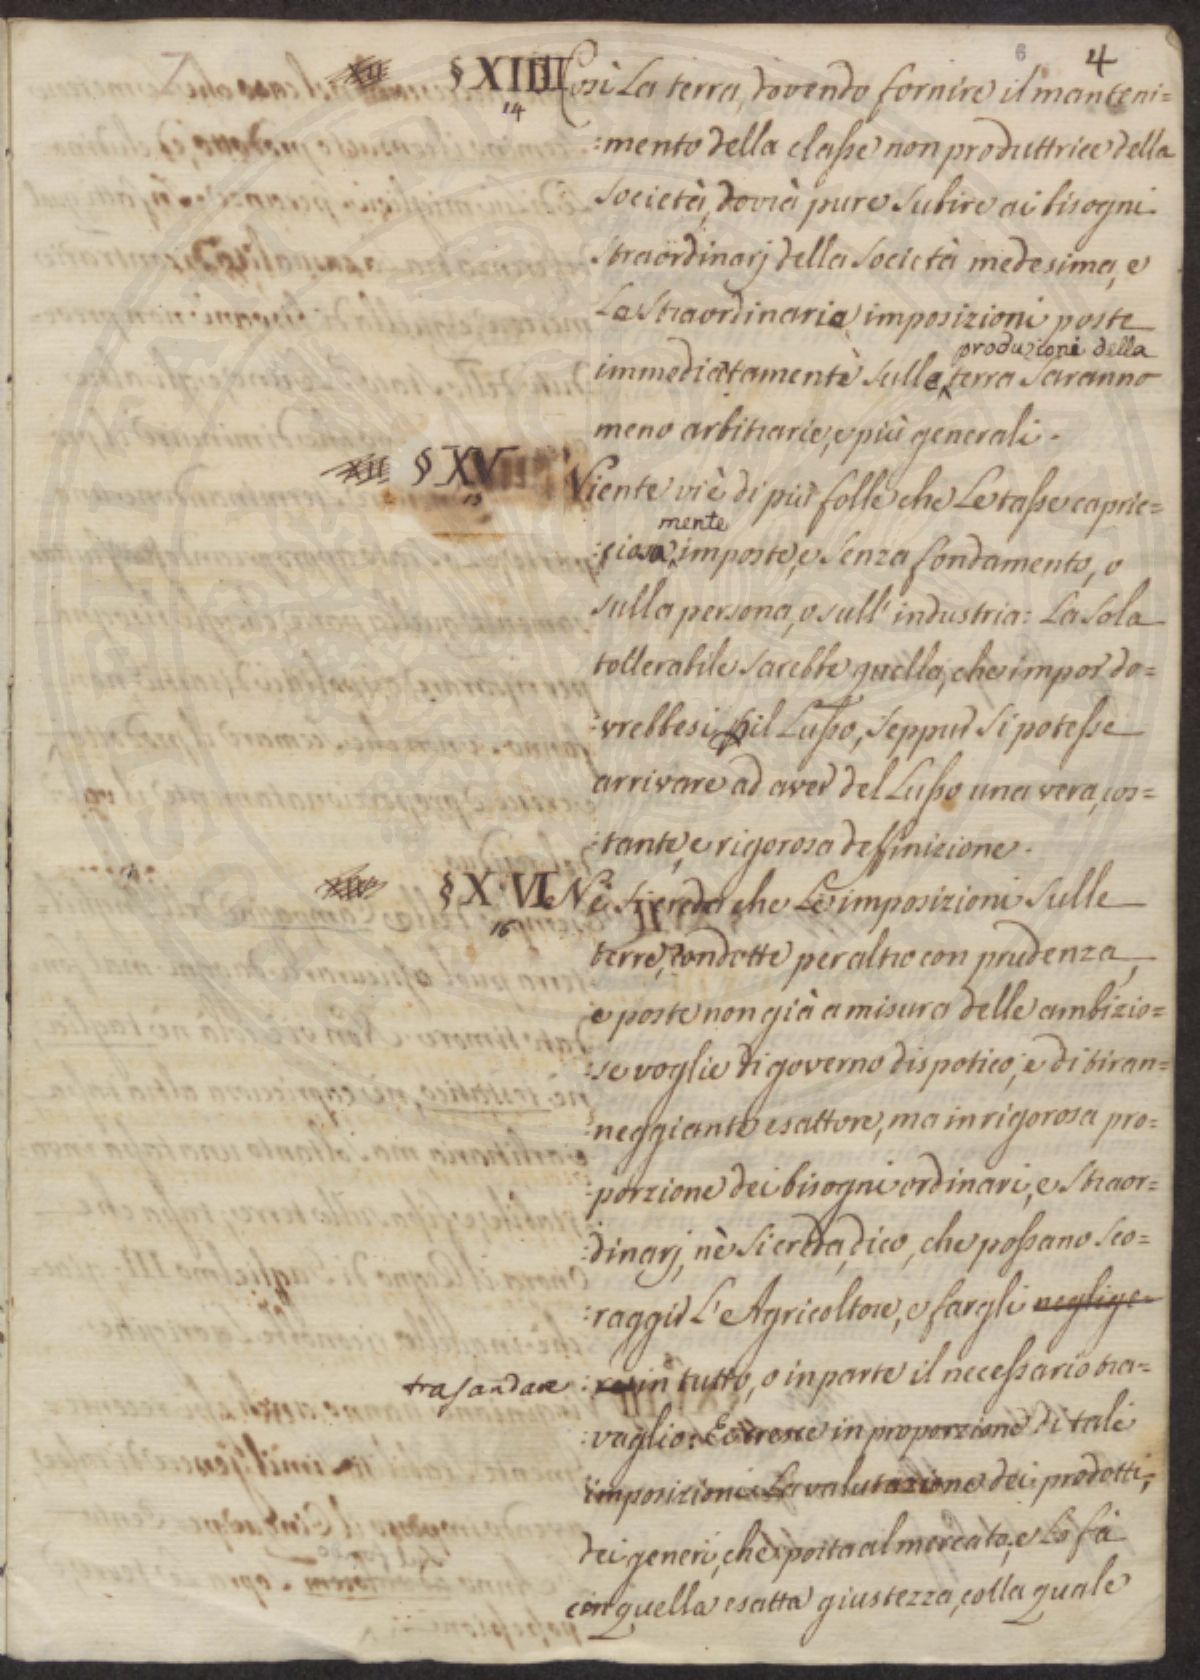 6 4
XII § XIIII Così la terra, dovendo fornire il manteni=
14
:mento della classe non produttrice della
società, dovrà pure subire ai bisogni
straordinarj della società medesima, e
le straordinarie imposizioni poste
produzioni della
immediatamente sulle terra saranno
meno arbitrarie, e più generali.
XII § XV Niente vi è di più folle che le tasse capric=
15
mente
:ciosa imposte, e senza fondamento, o
sulla persona, o sull' industria: la sola
tollerabile sarebbe quella, che impor do=
:vrebbesi sul lusso, seppur si potesse
arrivare ad aver del lusso una vera, cos=
:tante, e rigorosa definizione.
§ X VI Nè si creda che le imposizioni sulle
16
terre, condotte per altro con prudenza,
e poste non già a misura delle ambizio=
:se voglie di governo dispotico, e di tiran=
:neggiante esattore, ma in rigorosa pro=
:porzione dei bisogni ordinari, e straor=
:dinarj, nè si creda, dico, che possano sco=
:raggir l'Agricoltore, e fargli neglige=
trasandare :re in tutto, o in parte il necessario tra=
:vaglio: Ei cresce in proporzione di tali
imposizioni la valutazione dei prodotti,
dei generi, che porta al mercato, e lo fà
con quella esatta giustezza, colla quale